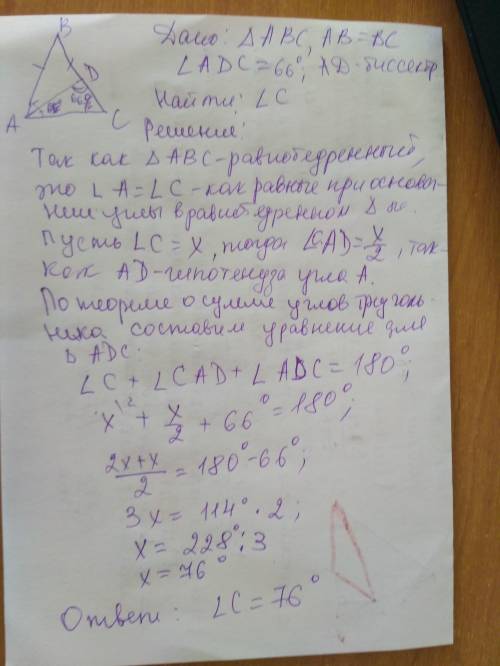 B
D
66°
A
C
Дано: ΔABC, AB=BC
∠ADC=66°; AD-биссектр
Найти: ∠C
Решение:
Так как ΔABC-равнобедренный,
то ∠A=∠C-как равные при основа-
нии углы в равнобедренном Δ
Пусть ∠C=x, тогда ∠CAD=x/2, так-
как AD-гипотендза угла A.
По теореме о сумме углов треуголь-
ника составим уравнение для
Δ ADC:
∠C + ∠CAD + ∠ADC = 180°;
x\2 + x/2 + 66° = 180°;
2x+x/2 = 180°-66°;
3x = 114° · 2;
x = 228° : 3
x = 76°
Ответ: ∠C = 76°